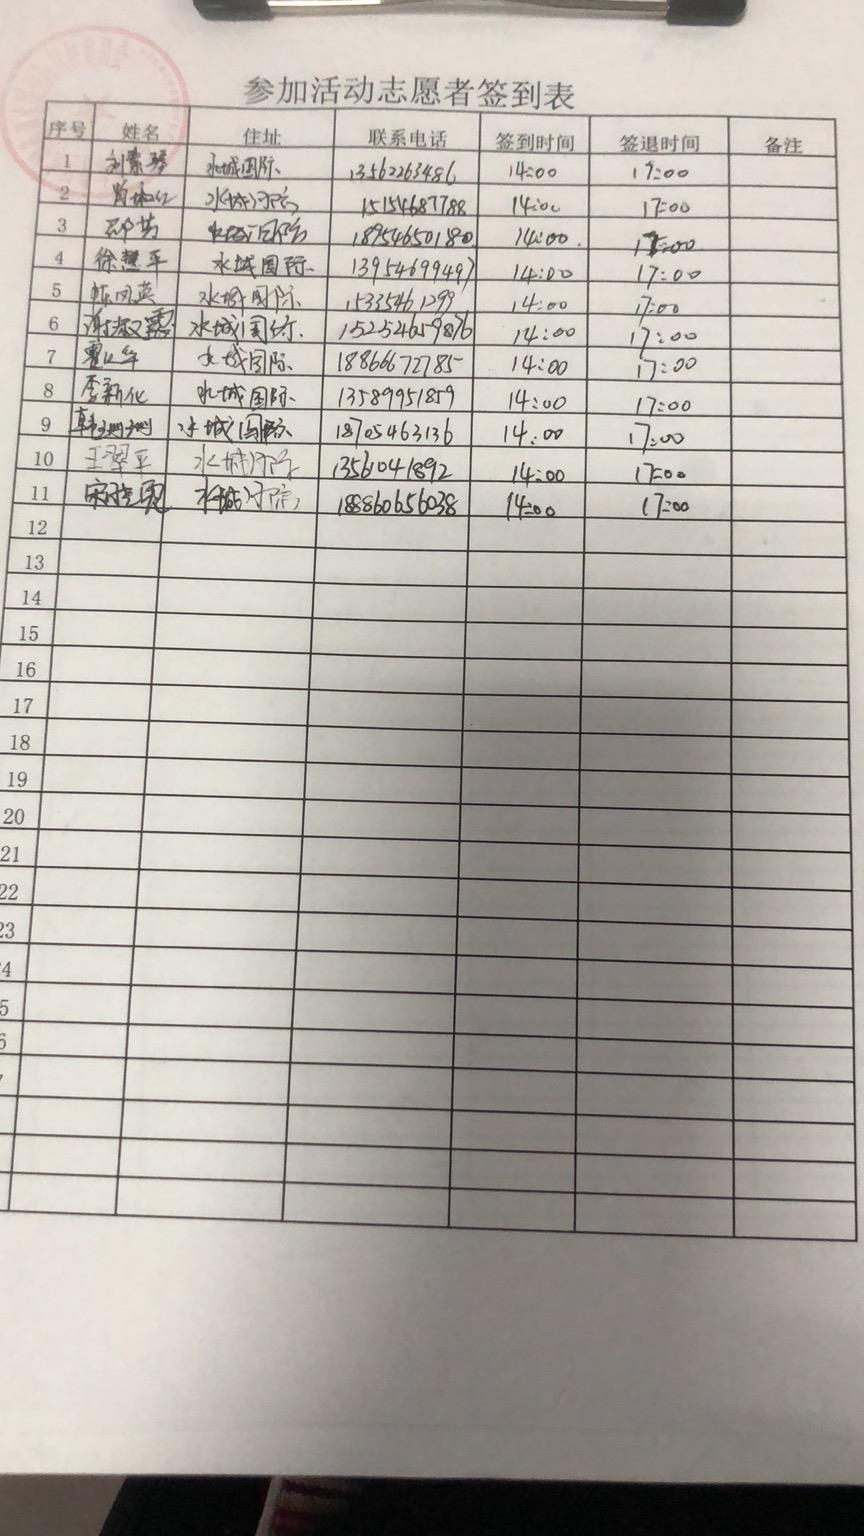 参加活动志愿者签到表
序号 姓名 住址 联系电话 签到时间 签退时间 备注
1 刘素琴 水城国际 13562263486 14:00 17:00
2 水城 15154687788 14:00 17:00
3 水城国际 18954650180 14:00 17:00
4 徐慧平 水城国际 13954699497 14:00 17:00
5 陈凤英 水城国际 15335461299 14:00 17:00
6 谢淑霞 水城国际 14:00 17:00
7 水城国际 18866672785 14:00 17:00
8 李新化 水城国际 13589951859 14:00 17:00
9 韩珊珊 水城国际 18705463136 14:00 17:00
10 王翠平 水城 13561041892 14:00 17:00
11 宋晓霞 水城 18860656038 14:00 17:00
12
13
14
15
16
17
18
19
20
21
22
23